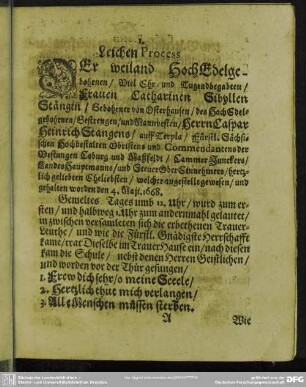 I.
Leichen Process
Der weiland Hoch Edelge-
bohrnen/ Viel Ehr- und Tugendbegabten/
Frauen Catharinen Sibyllen
Stängin/ Gebohrner von Osterhausen/ des Hoch Edel-
gebohrnen/ Gestrengen/ und Mannvesten/ Herrn Caspar
Heinrich Stangens/ auff Fürstl. Sächsi-
schen Hochbestalten Obristens und Commendantens der
Vestungen Coburg und Cammer Junckers/
Lands Hauptmanns/ und Steuer Ober Einnehmers/ hertz-
lich geliebten Eheliebsten/ welcher angestellt gewesen/ und
gehalten worden den 4. Maji. 1668.
Gemeltes Tages umb 12. Uhr/ wurd zum er-
sten/ und halbweg 1. Uhr zum andernmahl gelautet/
un zwischen versamleten sich die erbethenen Trauer-
Leuthe/ und wie die Fürstl. Gnädigste Herrschafft
kame/ trat Dieselbe im Trauer Hause ein/ nach diesen
kam die Schule/ nebst denen Herren Geistlichen/
und worden vor der Thür gesungen/
1. Frew dich sehr/ o meine Seele/
2. Hertzlich thut mich verlangen/
3. Alle Menschen müssen sterben.
A Wie